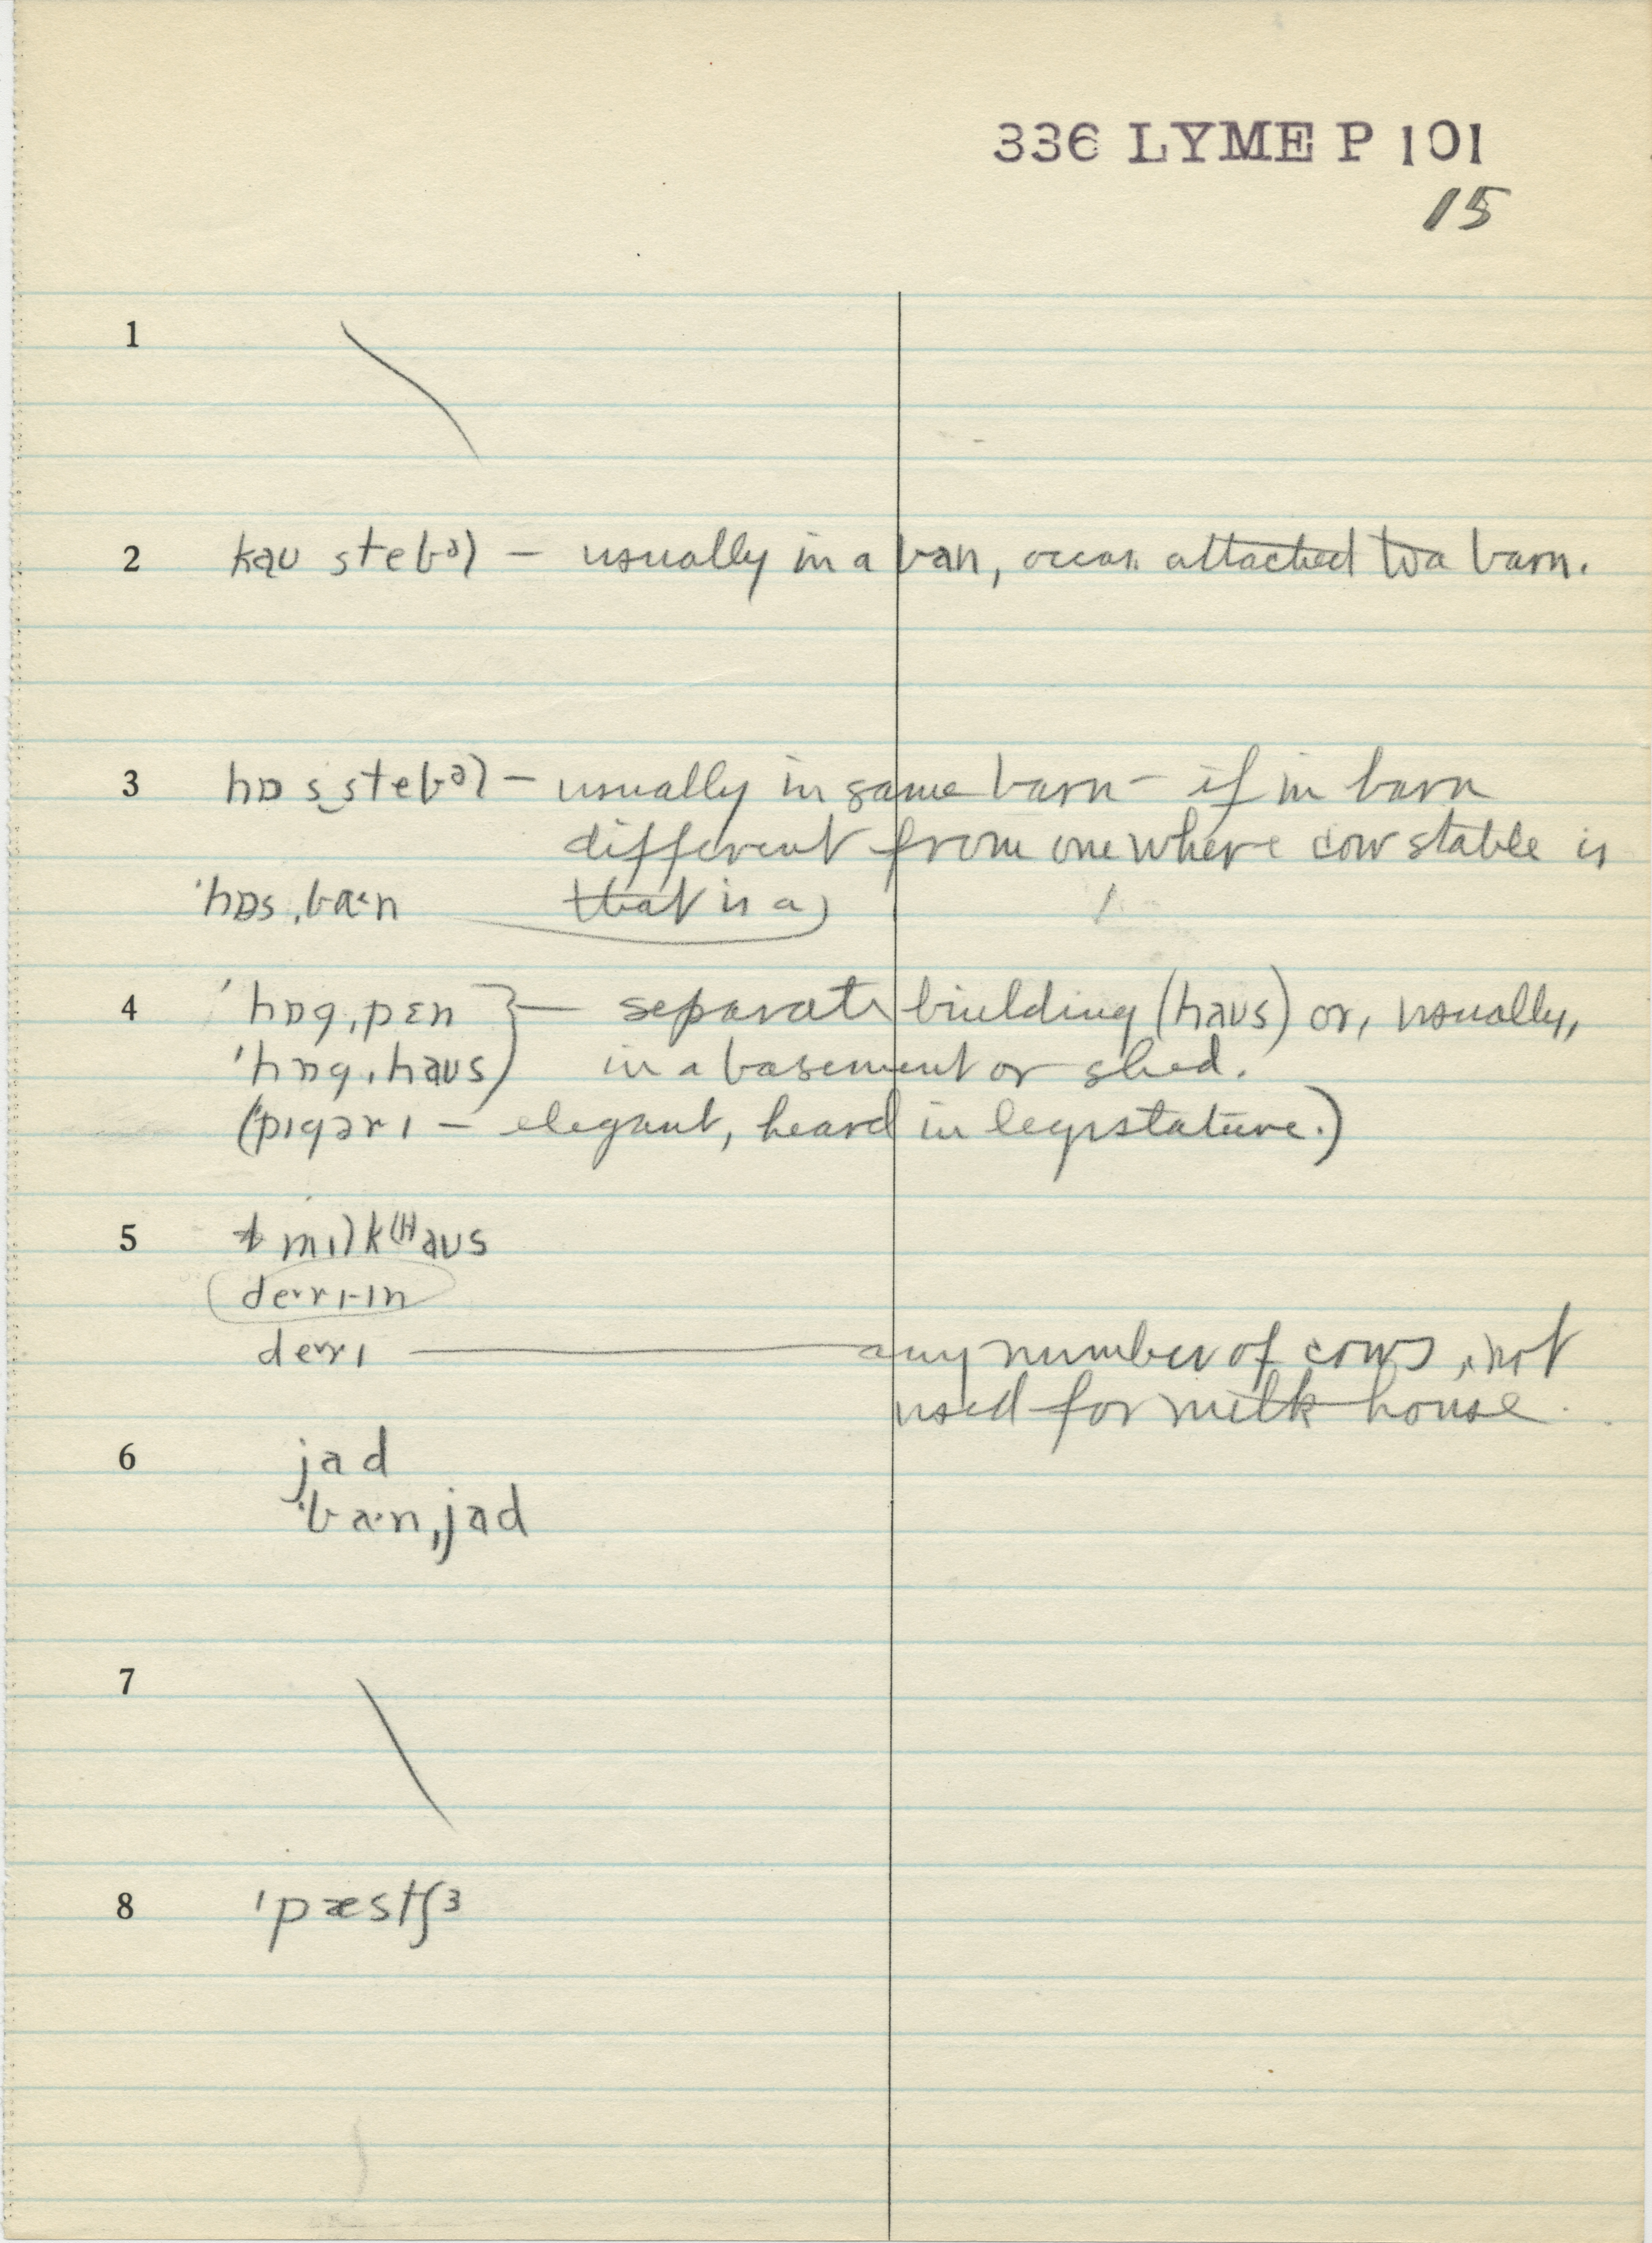 336 LYME P 101
15
1
2 kaʊ stebəl – usually in a ban, occas. attached to a barn.
3 hɒs‿stebəl – usually in same barn – if in barn
different from one where cow stable is
ˈhɒsˌbaˑn that is a
4 ˈhɒgˌpɛn } – separate building (haʊs) or, usually,
ˈhɒgˌhaʊs in a basement or shed.
(ˈpɪgərɪ – elegant, heard in legislature.)
5 mɪlk(H)aʊs
deˑrɪ-ɪn
derɪ — any number of cows, not
used for milk house.
6 jad
ˈbaˑnˌjad
7
8 ˈpæstʃɜ